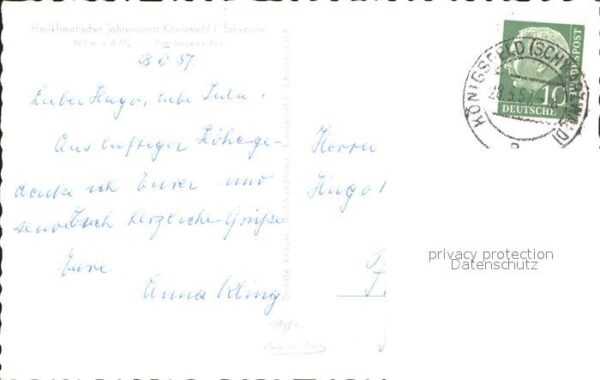 Heilklimatischer Jahreskurort Königsfeld i. Schwarzw.
763 m ü. d. M.
28 V 57.
Lieber Hugo, liebe Julia!
Aus luftiger Höhe ge-
denke ich Eurer und
sende Euch herzliche Grüße
Eure
Anna Kling
Herrn
Hugo
KÖNIGSFELD (SCHWARZWALD)
28.5.57
DEUTSCHE
BUNDESPOST
10
privacy protection
Datenschutz